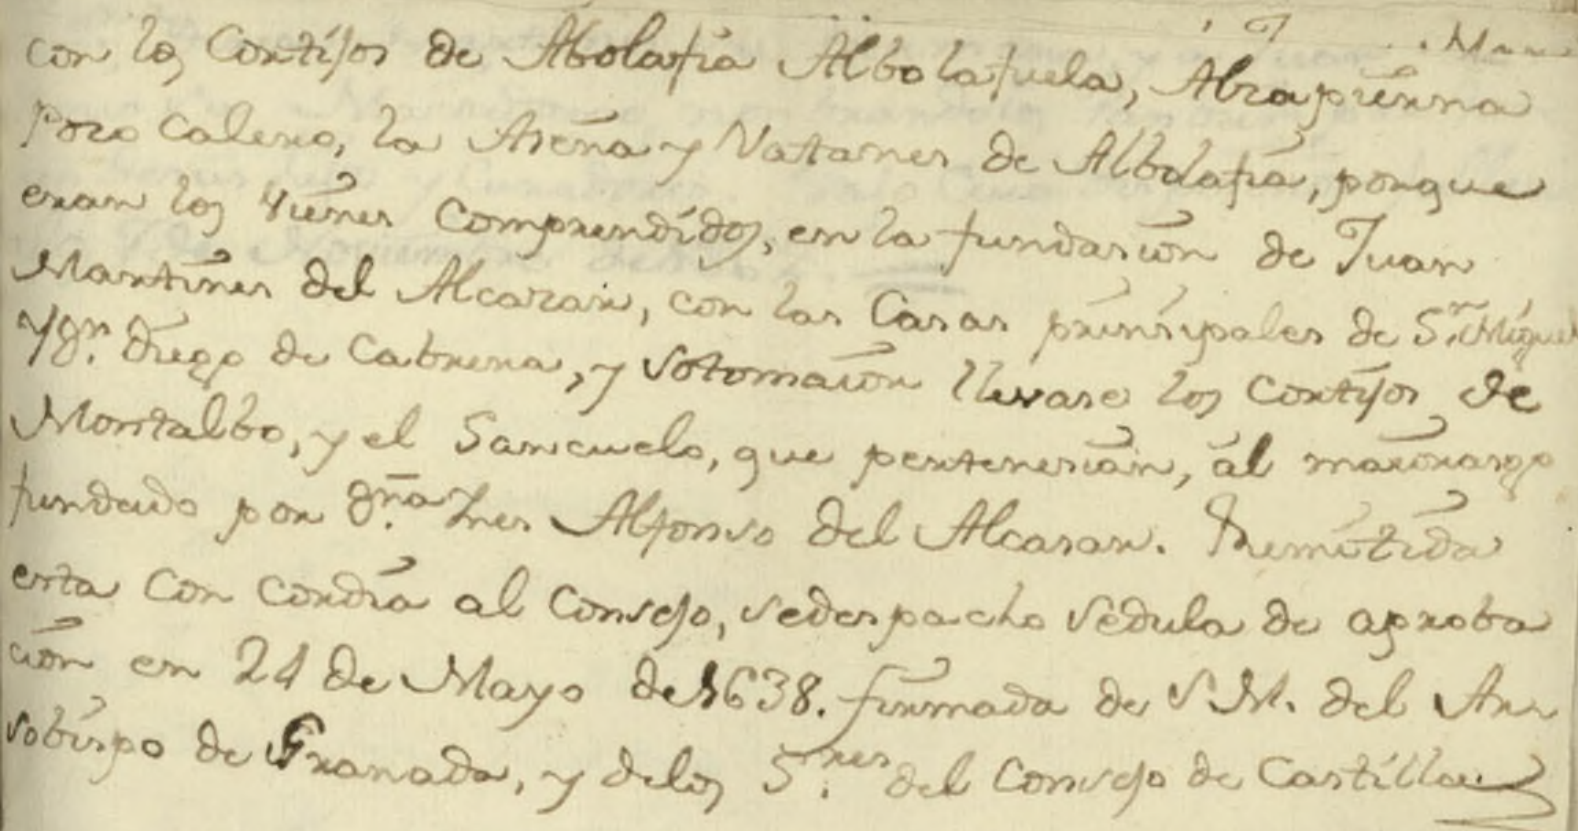 con los Cortijos de Abolafia Albolafuela, Abrapierna
Pozo Calero, la Arena y Vatanes de Albolafia, porque
eran los vienes Comprendidos, en la fundasion de Juan
Martines del Alcazar, con las Casas prinsipales de S.n Miguel
Y Dn. Diego de Cabrera, y Sotomaior llevase los Cortijos de
Montalbo, y el Sancuelo, que pertenesian, al maiorasgo
fundado por Dña Ines Alfonso del Alcasar. Remitida
esta Concordia al Consejo, se despacho sedula de aproba
cion en 24 de Mayo de 1638. firmada de S M. del Ar
sobispo de Granada, y de los S.res del Consejo de Castilla